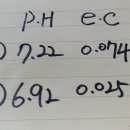 P.H e.c
) 7.22 0.074
) 6.92 0.025